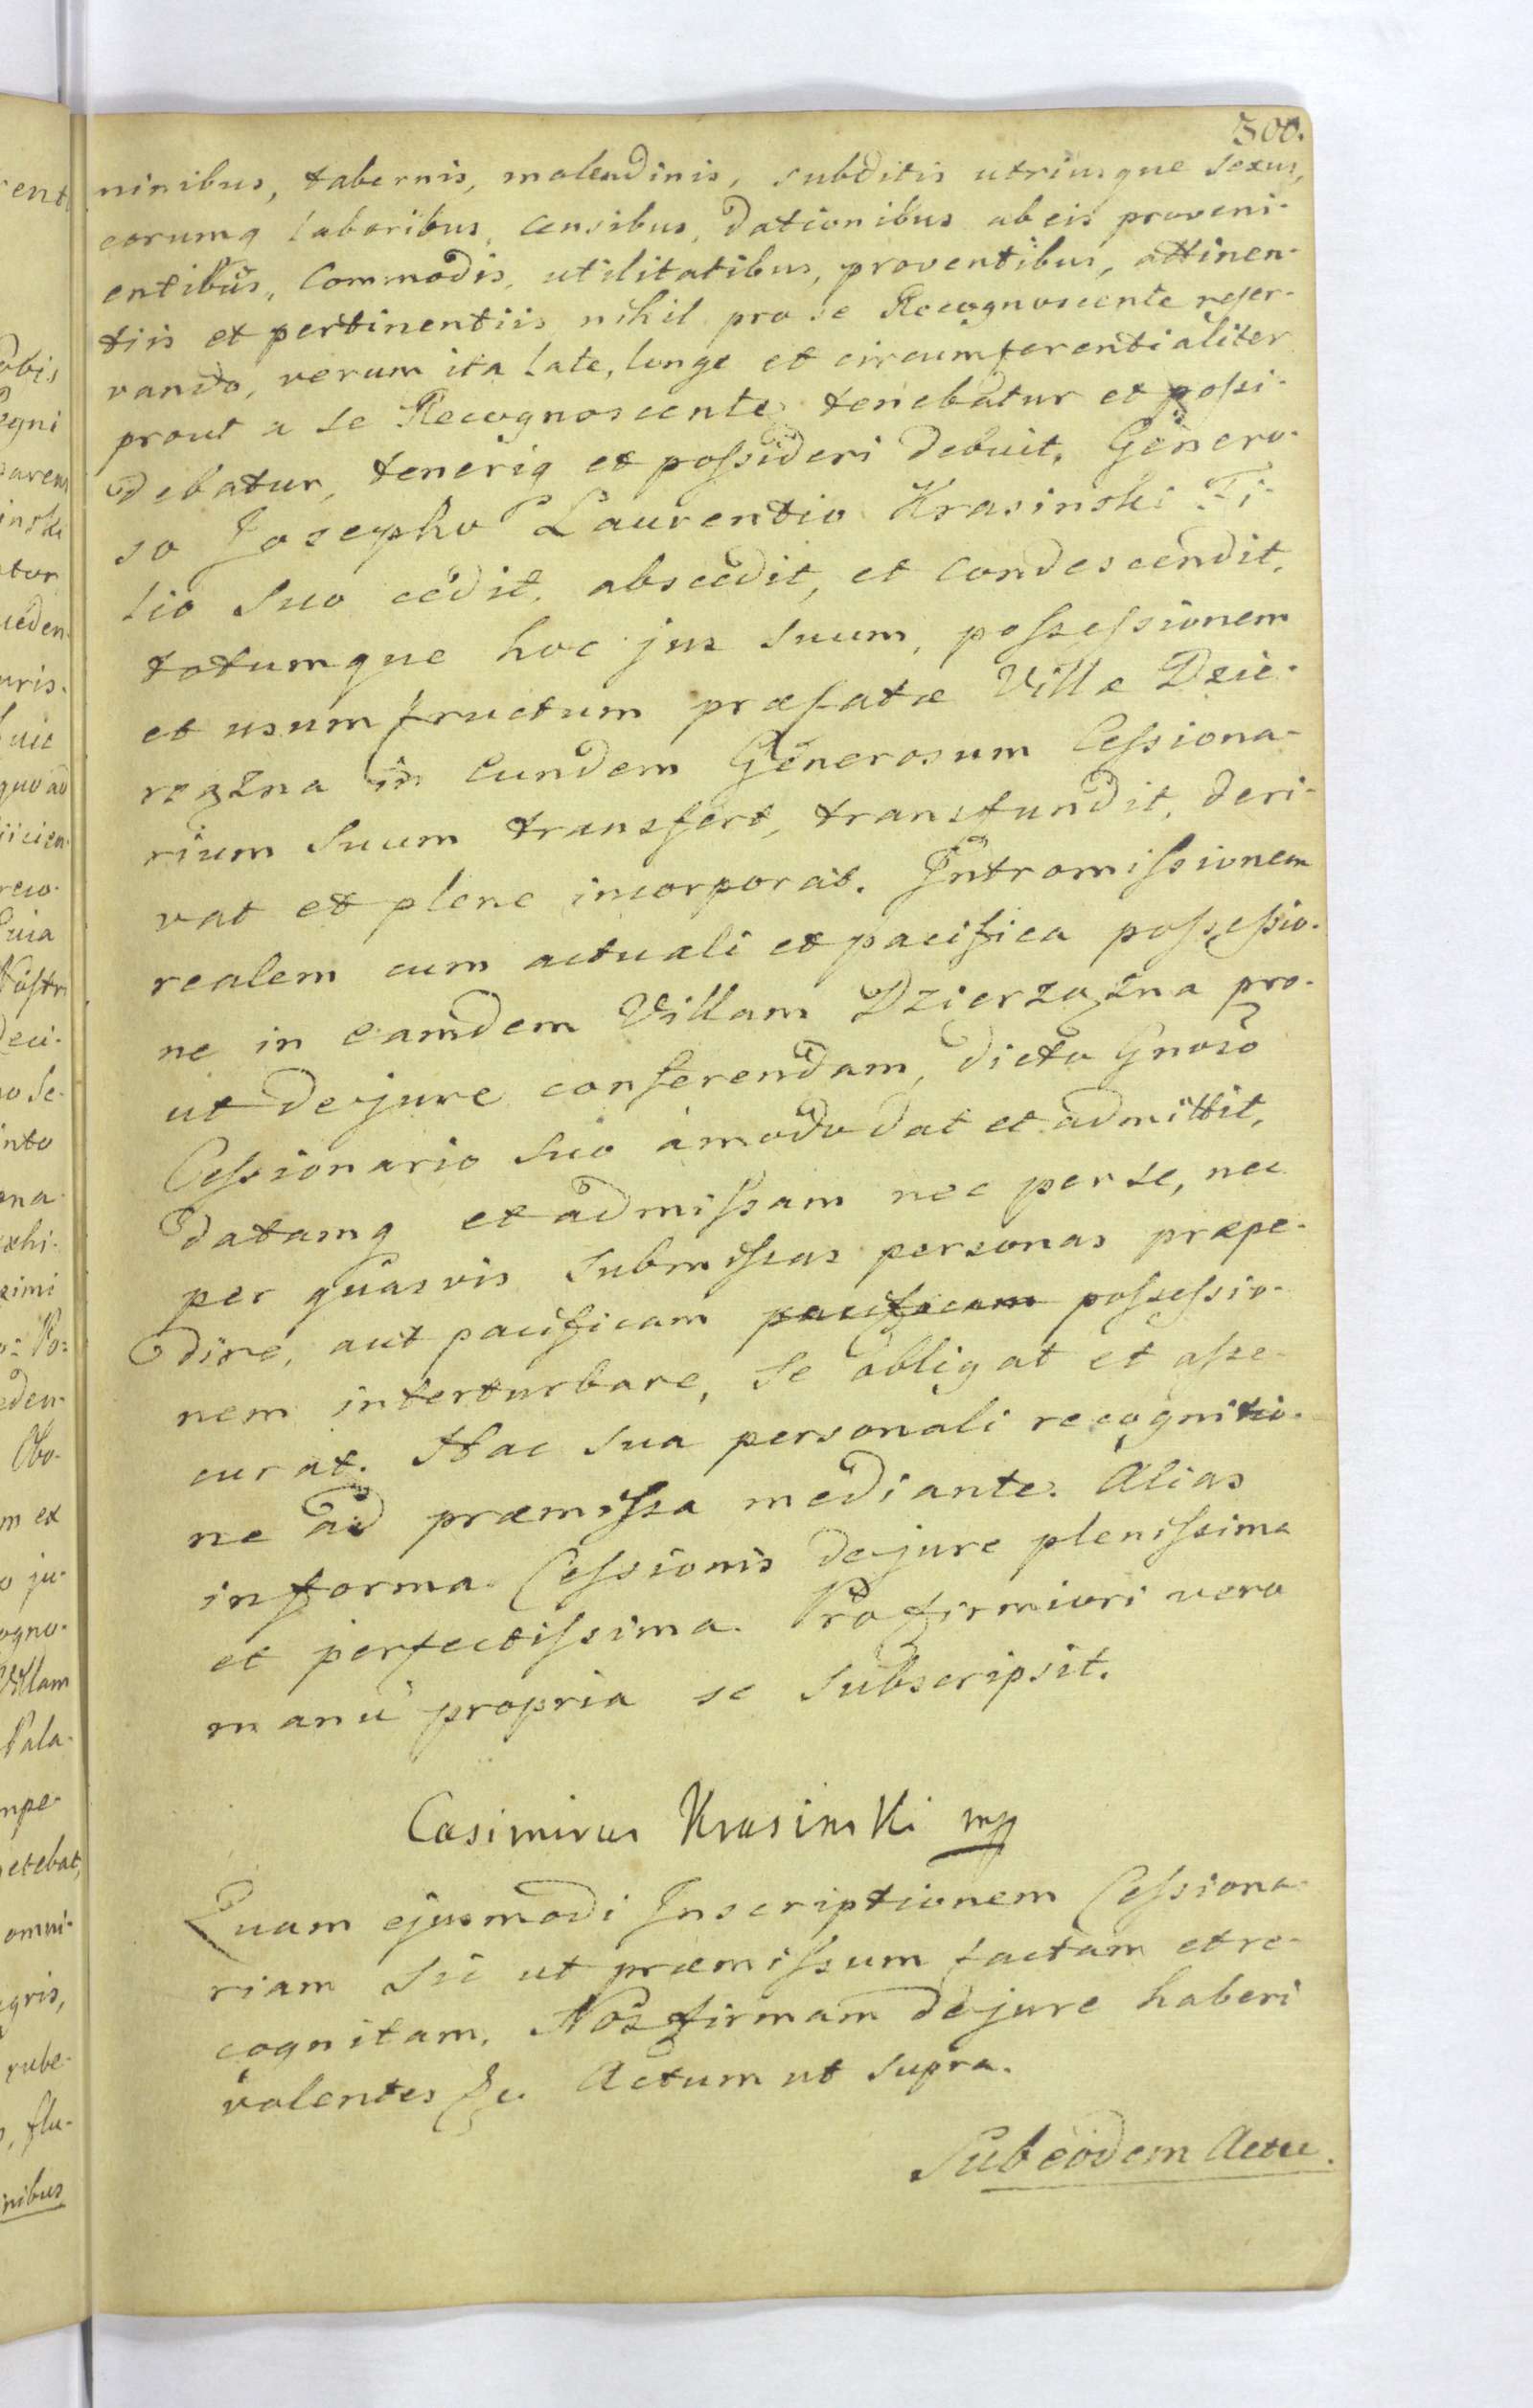 300.
ninibus, tabernis, molendinis, subditis utriusque Sexus,
eorumq laboribus, censibus, dationibus ab eis proveni-
entibus, Commodis, utilitatibus, proventibus, attinen-
tiis et pertinentiis nihil pro se Recognoscente reser-
vando, verum ita late, longe et circumferentialiter
prout a se Recognoscente tenebatur et possi-
debatur, teneriq et possideri debuit, Genero-
so Josepho Laurentio Krasinski Fi-
lio Suo cedit, abscedit, et condescendit,
totumque hoc jus Suum, possessionem
et usumfructum præfatæ Villæ Dzie-
rzązna in Eundem Generosum Cessiona-
rium Suum transfert, transfundit, deri-
vat et plene incorporat. Intromissionem
realem cum actuali et pacifica possessio-
ne in eamdem Villam Dzierzązna pro-
ut de jure conferendam, dicto Gnoso
Cessionario Suo amodo dat et admittit,
datamq et admissam nec per se, nec
per quasvis Submissas personas præpe-
dire, aut pacificam pacificam possessio-
nem interturbare, Se obligat et asse-
curat. Hac Sua personali recognitio-
ne ad præmissa mediante. Alias
in forma Cessionis de jure plenissima
et perfectissima. Pro firmiori vero
manu propria se Subscripsit.
Casimirus Krasinski mp
Quam ejusmodi Inscriptionem Cessiona-
riam Sic ut præmissum factam et re-
cognitam, Nos firmam de jure haberi
volentes &c. Actum ut Supra.
Sub eodem Actu.